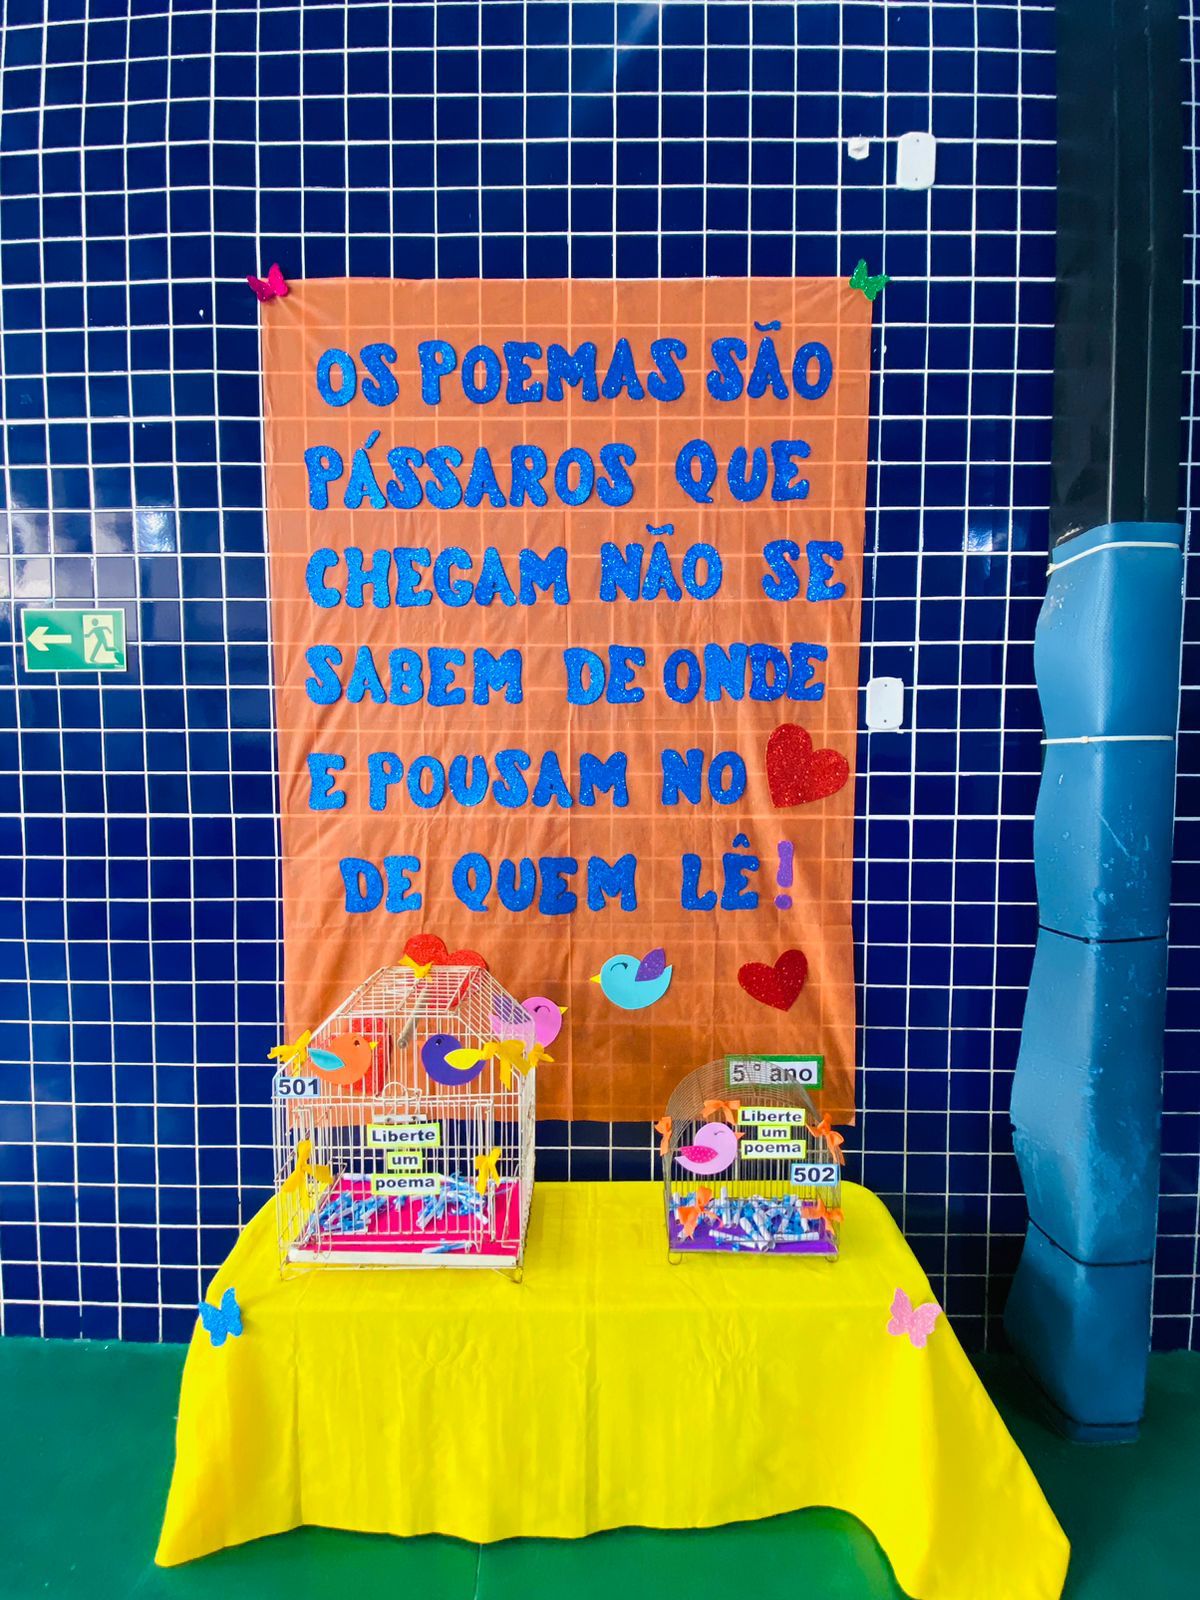 OS POEMAS SÃO
PÁSSAROS QUE
CHEGAM NÃO SE
SABEM DE ONDE
E POUSAM NO
DE QUEM LÊ!
501
Liberte
um
poema
5° ano
Liberte
um
poema
502